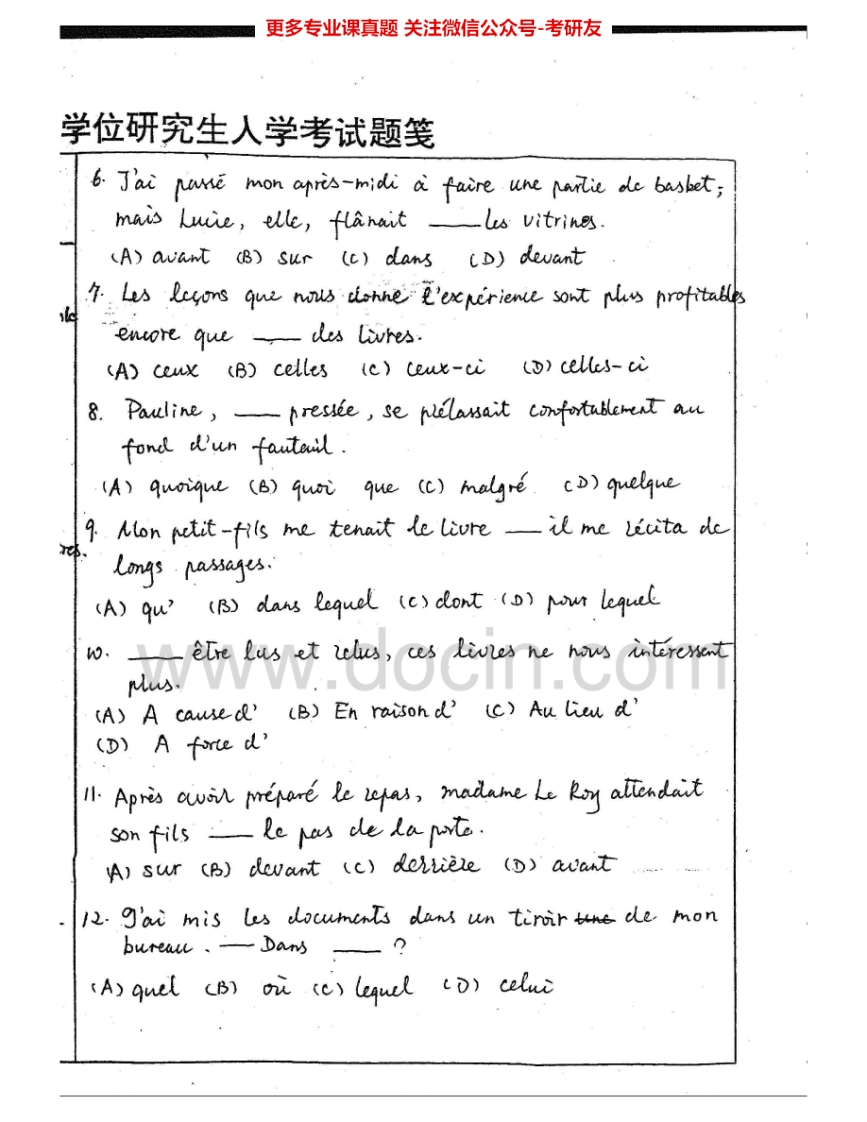 更多专业课真题 关注微信公众号-考研友
学位研究生入学考试题笺
6. J'ai passé mon après-midi à faire une partie de basket;
mais Lucie, elle, flânait ____ les vitrines.
(A) avant (B) sur (C) dans (D) devant
7. Les leçons que nous donne l'expérience sont plus profitables
encore que ____ des livres.
(A) ceux (B) celles (C) ceux-ci (D) celles-ci
8. Pauline, ____ pressée, se prélassait confortablement au
fond d'un fauteuil.
(A) quoique (B) quoi que (C) malgré (D) quelque
9. Mon petit-fils me tenait le livre ____ il me récita de
res.
longs passages.
(A) qu' (B) dans lequel (C) dont (D) pour lequel
10. ____ être lus et relus, ces livres ne nous intéressent
plus.
www.docin.com
(A) A cause d' (B) En raison d' (C) Au lieu d'
(D) A force d'
11. Après avoir préparé le repas, madame Le Roy attendait
son fils ____ le pas de la porte.
(A) sur (B) devant (C) derrière (D) avant
12. J'ai mis les documents dans un tiroir une de mon
bureau. — Dans ____ ?
(A) quel (B) où (C) lequel (D) celui